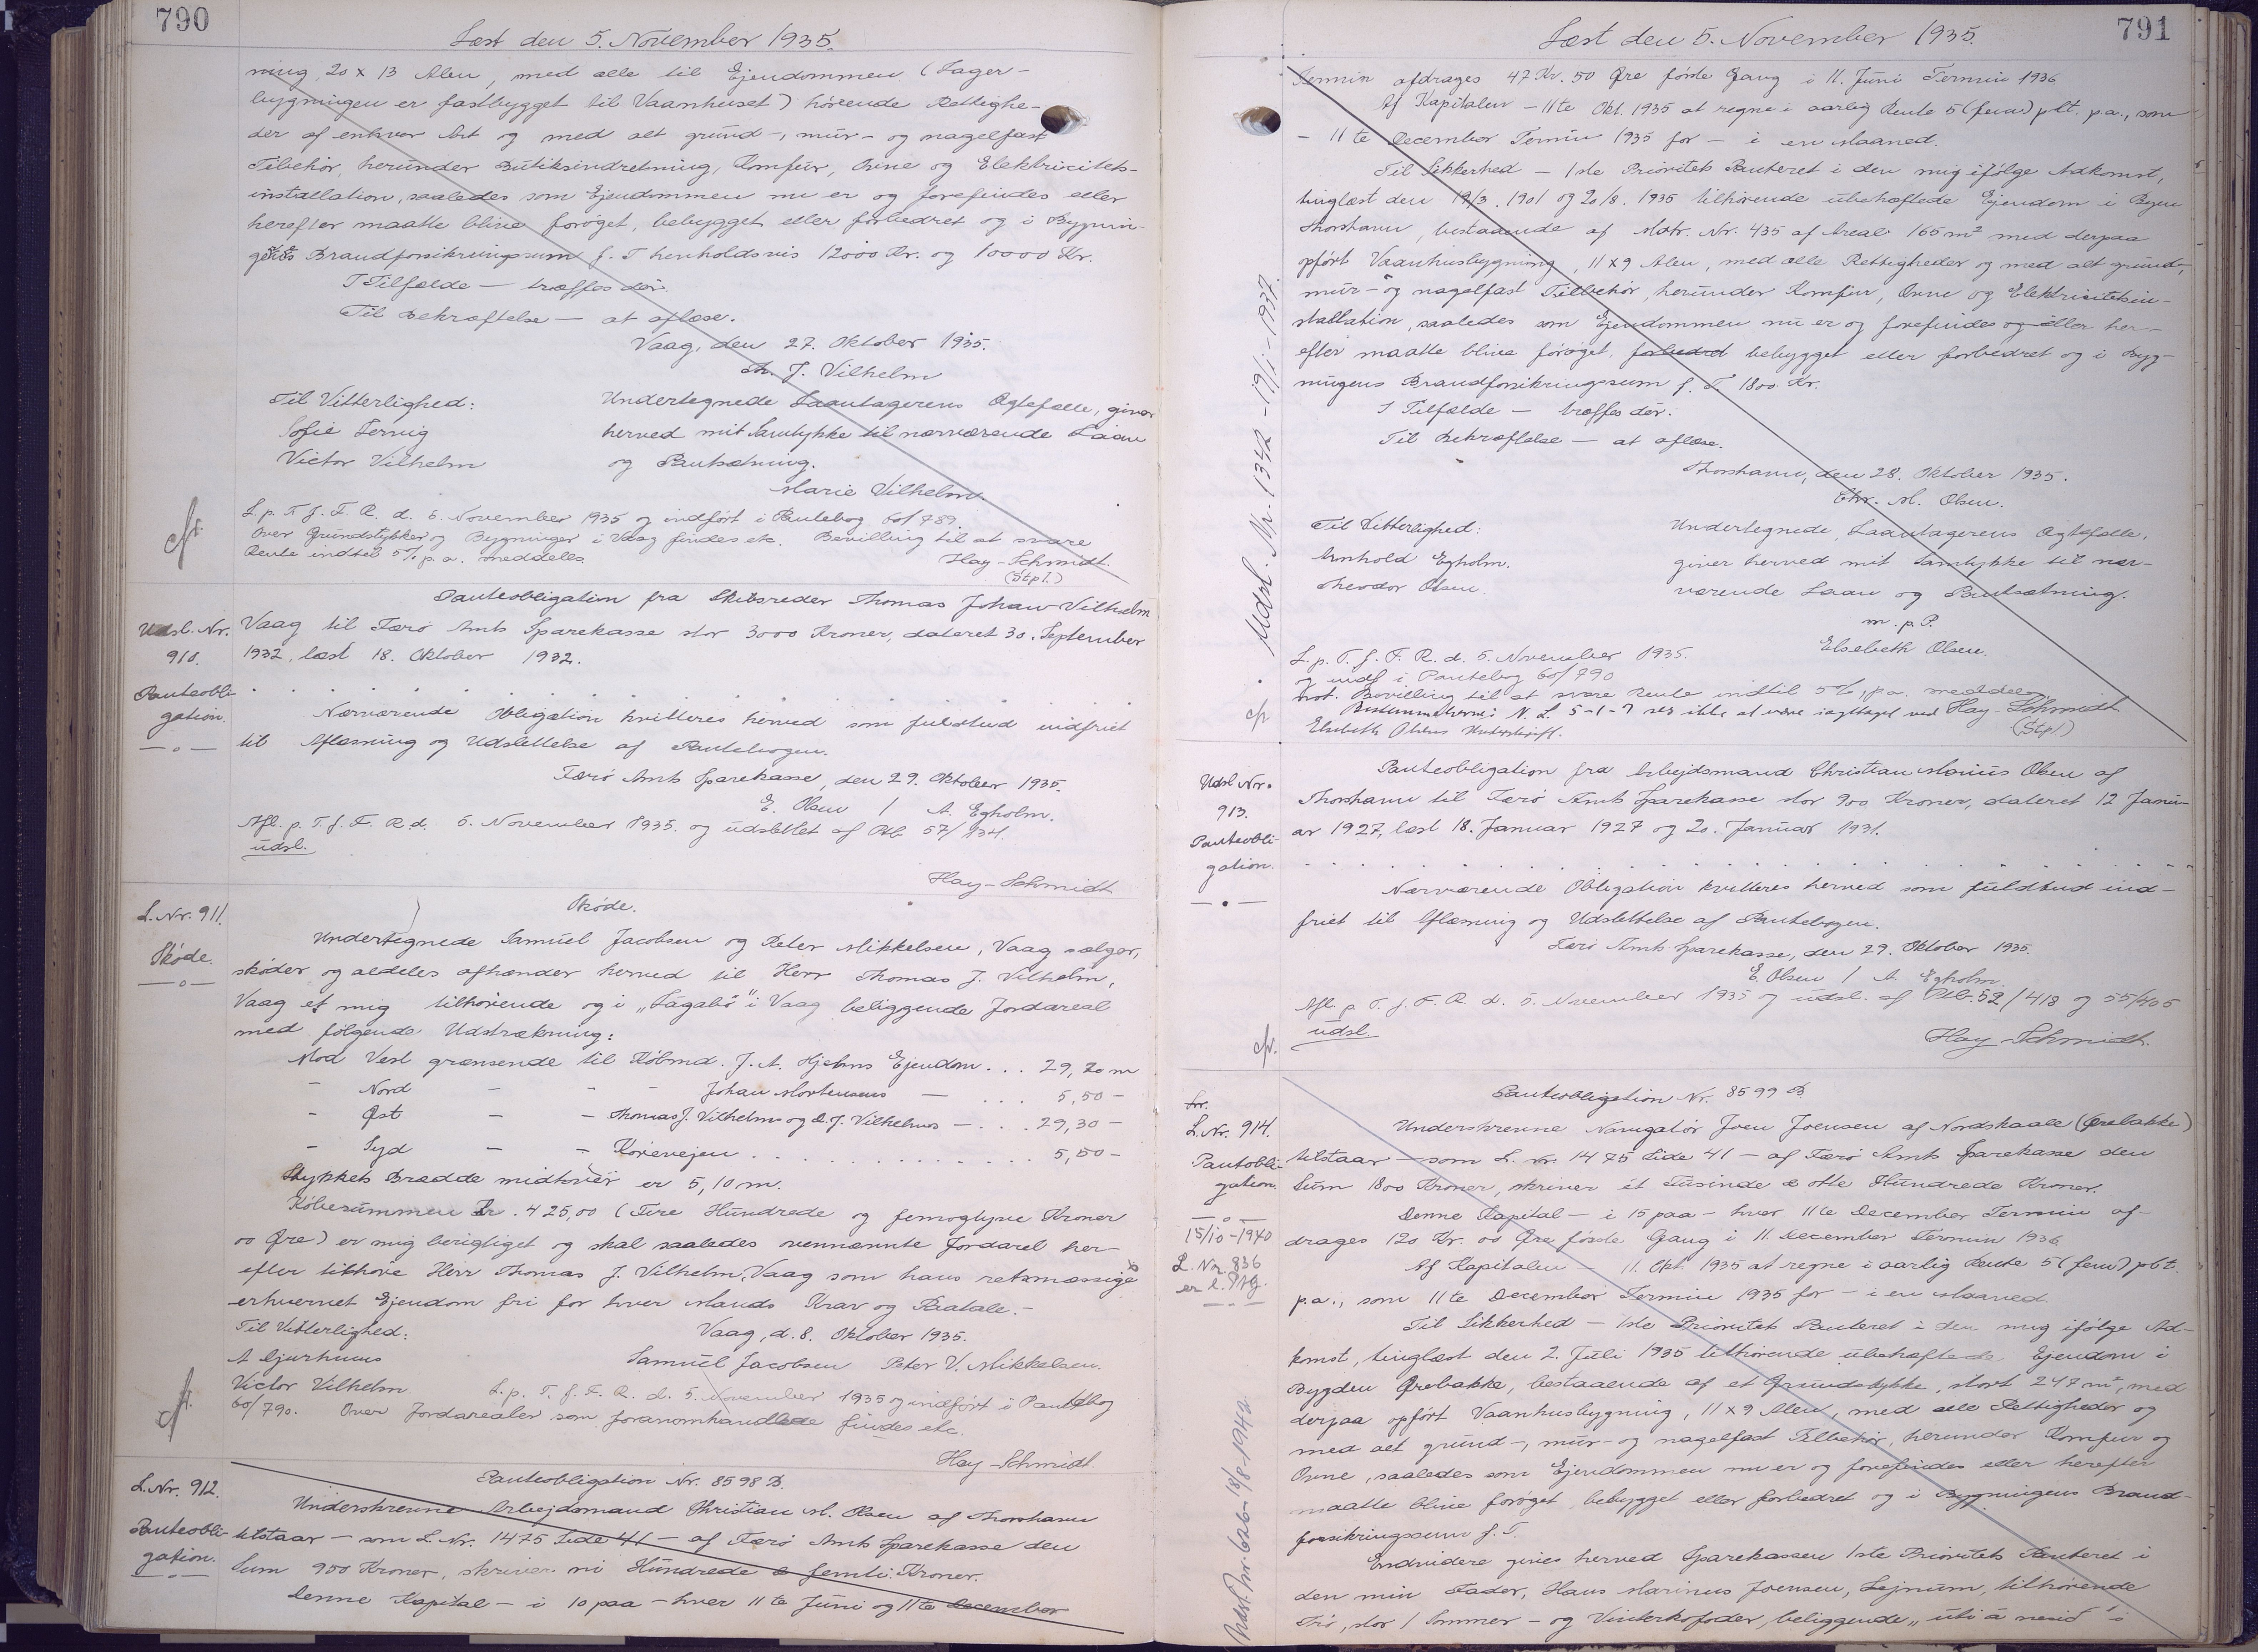 790
Læst den 5. November 1935.
ning, 20 x 13 Alen, med alle til Ejendommen (Lager-
bygningen er fastbygget til Vaanhuset) hörende Rettighe-
der af enhver Art og med alt grund-, mur- og nagelfast
Tilbehör, herunder Butiksindretning, Komfur, Ovne og Elektricitets-
installation, saaledes som Ejendommen nu er og forefindes eller
herefter maatte blive foröget, bebygget eller forbedret og i Bygnin-
gens Brandforsikringssum f. T. henholdsvis 12000 Kr. og 10000 Kr.
I Tilfælde — træffes dér.
Til Bekræftelse — at aflæse.
Vaag, den 27. Oktober 1935.
Th. J. Vilhelm
Til Vitterlighed: Undertegnede Laantagerens Ægtefælle, giver
Sofie herved mit Samtykke til nærværende Laan
Victor Vilhelm og Pantsætning.
Marie Vilhelm.
L. p. T. f. F. R. d. 5. November 1935 og indfört i Pantebog 60/789.
Over Grundstykker og Bygninger i Vaag findes etc. Bevilling til at svare
Rente indtil 5% p.a. meddeles.
Hay-Schmidt.
(Stpl.)
Udsl. Nr. 910.
Panteobli-
gation.
Panteobligation fra Skibsreder Thomas Johan Vilhelm
Vaag til Færö Amts Sparekasse stor 3000 Kroner, dateret 30. September
1932, læst 18. Oktober 1932.
Nærværende Obligation kvitteres herved som fuldtud indfriet
til Aflæsning og Udslettelse af Pantebogen.
Færö Amts Sparekasse, den 29. Oktober 1935.
E. Olsen / A. Egholm.
Afl. p. T. f. F. R. d. 5. November 1935. og udslettet af Ptb. 57/134.
udsl.
Hay-Schmidt
L. Nr. 911.
Sköde.
Sköde.
Undertegnede Samuel Jacobsen og Peter Mikkelsen, Vaag sælger,
sköder og aldeles afhænder herved til Herr Thomas J. Vilhelm,
Vaag et mig tilhörende og i "Lagabö" i Vaag beliggende Jordareal
med fölgende Udstrækning:
Mod Vest grænsende til Købmd. J. A. Hjelms Ejendom . . . 29,20 m
- Nord - - - Johan Mortensens — . . . 5,50 -
- Øst - - Thomas J. Vilhelms og D. J. Vilhelms — . . . 29,30 -
- Syd - - Köревejen . . . 5,50 -
Stykkets Bredde midtover er 5,10 m.
Købesummen Kr. 425,00 (Fire Hundrede og femogtyve Kroner
00 Øre) er mig berigtiget og skal saaledes ovennævnte Jordarel her-
efter tilhöre Herr Thomas J. Vilhelm, Vaag som hans retsmæssige
erhvervet Ejendom fri for hver Mands Krav og Paatale.-
Til Vitterlighed: Vaag, d. 8. Oktober 1935.
A Djurhuus Samuel Jacobsen Peter V. Mikkelsen.
Victor Vilhelm L. p. T. f. F. R. d. 5. November 1935 og indfört i Pantebog
60/790. Over Jordarealer som foranomhandlede findes etc.
Hay-Schmidt.
L. Nr. 912.
Panteobli-
gation.
Panteobligation Nr. 8598 B.
Underskrevne Arbejdsmand Christian M. Olsen af Thorshavn
tilstaar — som L. Nr. 1475 Side 41 — af Færö Amts Sparekasse den
Sum 950 Kroner, skriver ni Hundrede & femti Kroner.
Denne Kapital — i 10 paa — hver 11te Juni og 11te December
791
Læst den 5. November 1935.
Termin afdrages 47 Kr. 50 Øre förste Gang i 11. Juni Termin 1936
Af Kapitalen — 11te Okt. 1935 at regne i aarlig Rente 5 (fem) pCt. p.a., som
— 11te December Termin 1935 for — i en Maaned.
Til Sikkerhed — 1ste Prioritets Panteret i den mig ifölge Adkomst,
tinglæst den 19/3. 1901 og 20/8. 1935 tilhörende ubehæftede Ejendom i Byen
Thorshavn, bestaaende af Matr. Nr. 435 af Areal 165 m² med derpaa
opfört Vaanhusbygning, 11 x 9 Alen, med alle Rettigheder og med alt grund-,
mur- og nagelfast Tilbehör, herunder Komfur, Ovne og Elektricitetsin-
stallation, saaledes som Ejendommen nu er og forefindes og eller her-
efter maatte blive foröget, forbedret bebygget eller forbedret og i Byg-
ningens Brandforsikringssum f. T. 1800 Kr.
I Tilfælde — træffes dér.
Til Bekræftelse — at aflæse.
Thorshavn, den 28. Oktober 1935.
Chr. M. Olsen.
Til Vitterlighed: Undertegnede, Laantagerens Ægtefælle,
Arnhold Egholm. giver herved mit Samtykke til nær-
Theodor Olsen. værende Laan og Pantsætning.
m. p. P.
Elsebeth Olsen.
L. p. T. f. F. R. d. 5. November 1935.
og indf i Pantebog 60/790
Bevilling til at svare Rente indtil 5%, p.a. meddeles.
Bestemmelserne i N. L. 5-1-7 ses ikke at være iagttaget ved Hay-Schmidt
Elsebeth Olsens Underskrift. (Stpl)
Udsl. Nr. 1342 - 19/1 - 1937.
Udsl Nr.
913.
Panteobli-
gation.
Panteobligation fra Arbejdsmand Christian Marius Olsen af
Thorshavn til Færö Amts Sparekasse stor 900 Kroner, dateret 12 Janu-
ar 1927, læst 18. Januar 1927 og 20. Januar 1931.
Nærværende Obligation kvitteres herved som fuldtud ind-
friet til Aflæsning og Udslettelse af Pantebogen.
Færö Amts Sparekasse, den 29. Oktober 1935.
E. Olsen / A. Egholm
Afl. p T. f. F. R. d. 5. November 1935 og udsl. af Ptb. 52/418 og 55/405
udsl
Hay-Schmidt.
L. Nr. 914.
Pantobli-
gation.
15/10-1940
L. Nr. 836
Panteobligation Nr. 8599 B
Underskrevne Navigatör Joen Joensen af Nordskaale (Ørebakke)
tilstaar — som L. Nr. 1475 Side 41 — af Færö Amts Sparekasse den
Sum 1800 Kroner, skriver ét Tusinde & otte Hundrede Kroner.
Denne Kapital — i 15 paa — hver 11te December Termin af-
drages 120 Kr. 00 Øre förste Gang i 11. December Termin 1936
Af Kapitalen — 11. Okt 1935 at regne i aarlig Rente 5 (fem) pCt.
p.a., som 11te December Termin 1935 for — i en Maaned.
Til Sikkerhed — 1ste Prioritets Panteret i den mig ifölge Ad-
komst, tinglæst den 2. Juli 1935 tilhörende ubehæftede Ejendom i
Bygden Ørebakke, bestaaende af et Grundstykke, stort 247 m², med
derpaa opfört Vaanhusbygning, 11 x 9 Alen, med alle Rettigheder og
med alt grund-, mur- og nagelfast Tilbehör, herunder Komfur og
Ovne, saaledes som Ejendommen nu er og forefindes eller herefter
maatte blive foröget, bebygget eller forbedret og i Bygningens Brand-
forsikringssum f. T.
Endvidere gives herved Sparekassen 1ste Prioritets Panteret i
den min Fader, Hans Marinus Joensen, Sejnum, tilhörende
Trö, stor 1 Sommer- og Vinterkofoder, beliggende "uti á nesið" i
Udsl. Nr. 626 - 18/8-1942